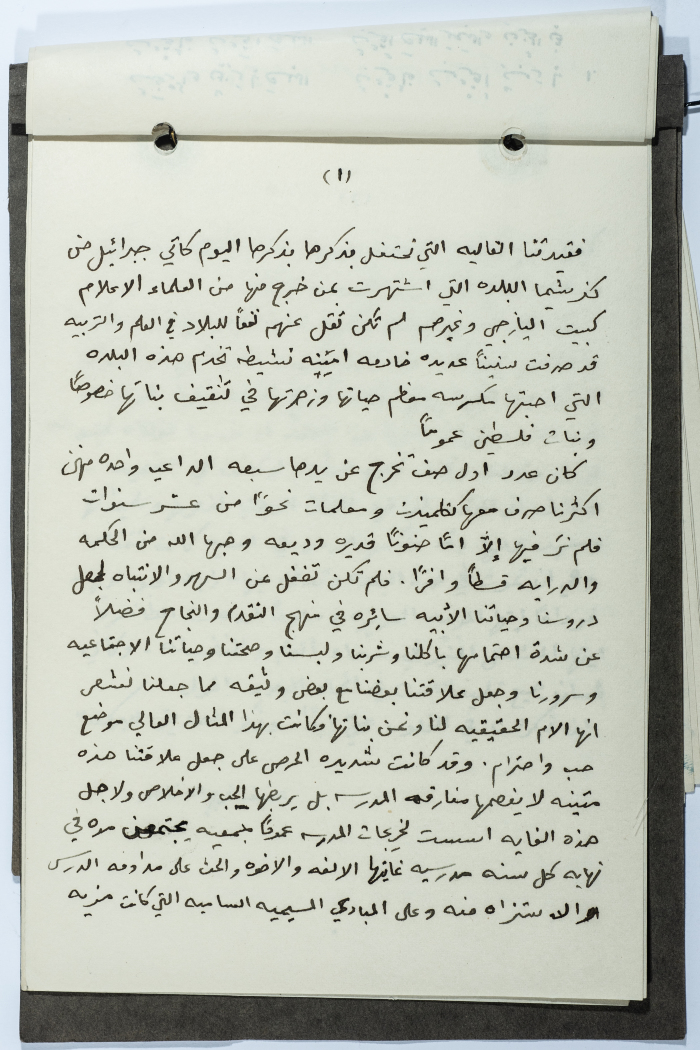 (١)
فقيدتنا الغاليه التي نحتفل بذكرها بذكرها اليوم كاتي جبرائيل من
كفرشيما البلده التي اشتهرت بمن خرج منها من العلماء الاعلام
كبيت اليازجي وغيرهم لم تكن تقل عنهم نفعاً للبلاد في العلم والتربيه
قد صرفت سنيناً عديده خادمه امينه نشيطه تخدم هذه البلده
التي احبتها مكرسه معظم حياتها وزهرتها في تثقيف بناتها خصوصاً
وبنات فلسطين عموماً
كان عدد اول صف تخرج عن يدها سبعه الداعيه واحده منهن
اكثرنا صرف معها كتلميذات ومعلمات نحواً من عشر سنوات
فلم نرَ فيها إلاّ امّا حنونًا قديره وديعه وهبها الله من الحكمه
والدرايه قسطاً وافرًا. فلم تكن تغفل عن السهر والانتباه لجعل
دروسنا وحياتنا الأدبيه سائره في منهج التقدم والنجاح فضلاً
عن شدة اهتمامها باكلنا وشربنا ولبسنا وصحتنا وحياتنا الاجتماعيه
وسرورنا وجعل علاقتنا بعضنا مع بعض وثيقه مما جعلنا نعتبر
انها الام الحقيقيه لنا ونحن بناتها فكانت بهذا المثال العالي موضع
حب واحترام. وقد كانت شديده الحرص على جعل علاقتنا هذه
متينه لا يفصمها مفارقه المدرسه بل يربطها الحب والاخلاص ولاجل
هذه الغايه اسست لخريجات المدرسه عموماً جمعيه يجتمعن مره في
نهايه كل سنه مدرسيه غايتها الالفه والاخوه والحث على مداومه الدرس
والاستزاده منه وعلى المبادئ المسيحيه الساميه التي كانت مزيه